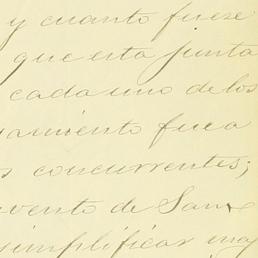 y cuanto fuese
que esta junta
cada uno de los
amiento fuea
s concurrentes;
vento de San
simplificar